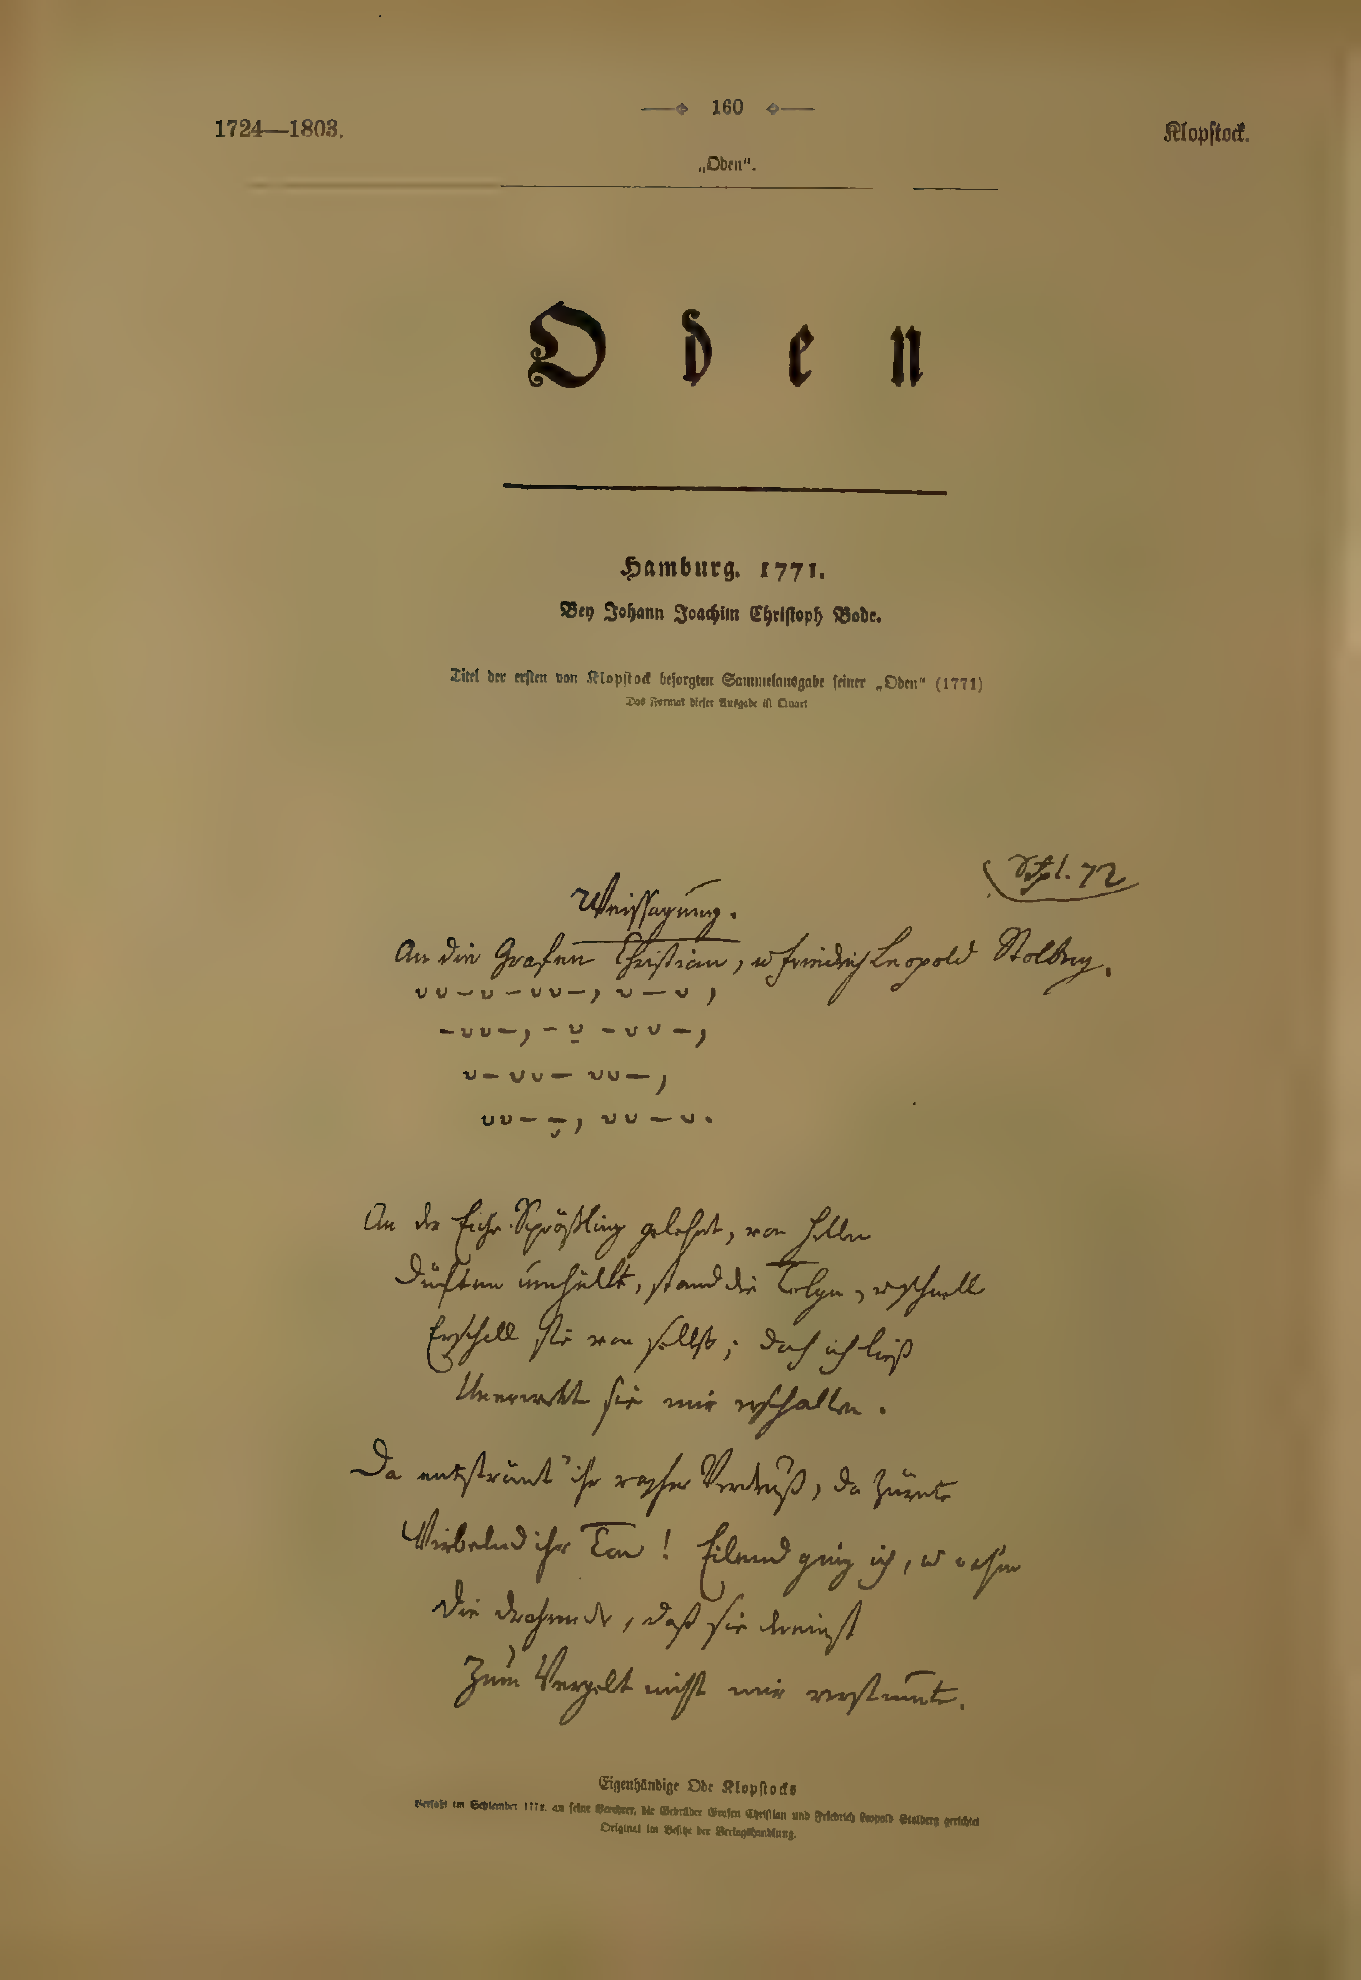 160
1724—1803.
Klopſtock.
„Oden“.
Oden
Hamburg. 1771.
Bey Johann Joachim Chriſtoph Bode.
Titel der erſten von Klopſtock beſorgten Sammelausgabe ſeiner „Oden“ (1771)
Das Format dieſer Ausgabe iſt Quart
Weiſſagung.
An die Grafen Chriſtian, u Friedrich Leopold Stolberg.
∪∪–∪–∪∪–, ∪–∪,
–∪∪–, –∪–∪∪–,
∪–∪∪–∪∪–,
∪∪––, ∪∪–∪.
An der Eiche Sprößling gelehnt, von hellen
Düften umhüllt, ſtand die Telyn, u ſchnell
Erſcholl ſie von ſelbſt; doch ich ließ
Unerweckt ſie mir erſchallen.
Da entſtrömt' ihr raſcher Verdruß, da zürnte
Wirbelnd ihr Ton! Eilend ging ich, u nahm
Die drohende, daß ſie dereinſt
Zum Vergelt nicht mir verſtumte.
Eigenhändige Ode Klopſtocks
Verfaßt im September 1772, an ſeine Verehrer, die Gebrüder Grafen Chriſtian und Friedrich Leopold Stolberg gerichtet
Original im Beſitze der Verlagshandlung.